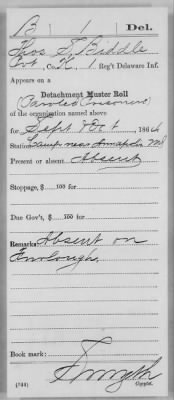 B | 1 | Del.
Thos S. Biddle
Pvt, Co. K, 1 Reg't Delaware Inf.
Appears on a
Detachment Muster Roll
(Paroled Prisoners)
of the organization named above
for Sept & Oct, 1864
Station Camp near Annapolis Md
Present or absent Absent
Stoppage, $ 100 for
Due Gov't, $ 100 for
Remarks: Absent on
Furlough.
Book mark:
(344) Copyist.